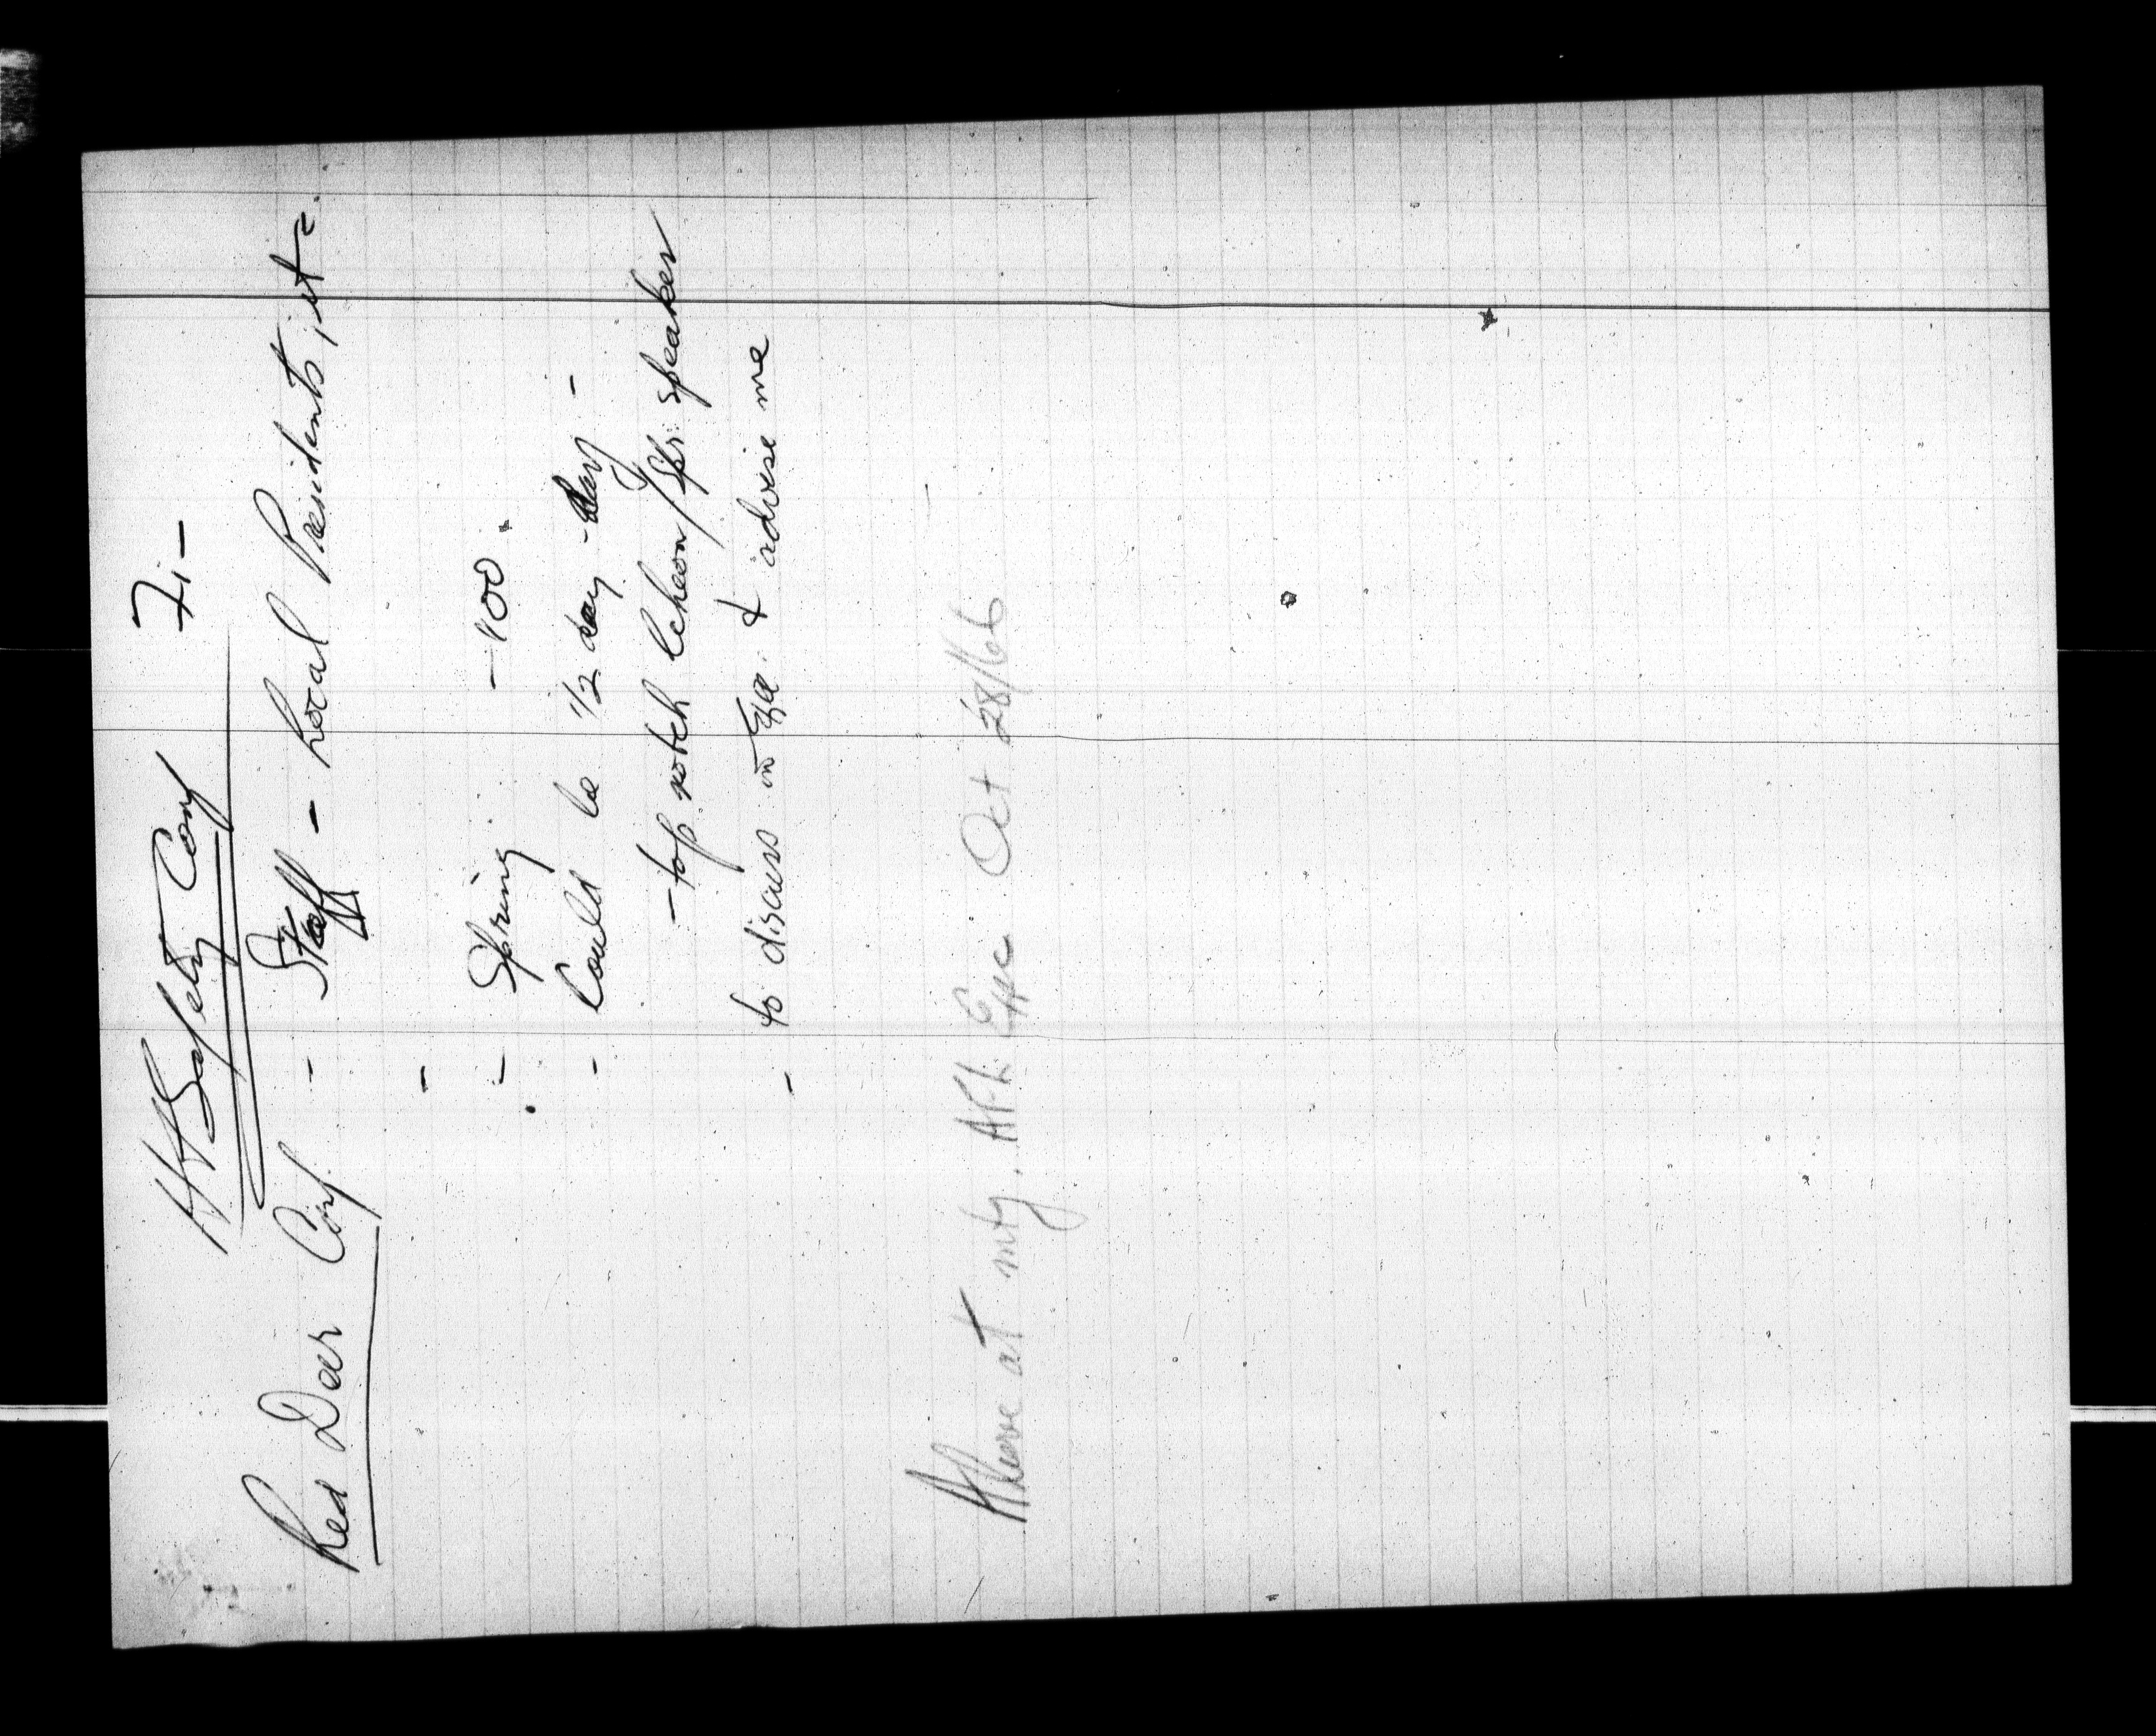 Safety Conf 7i-
Red Deer Conf. - Staff - Local Presidents, etc.
-
- Spring - 100.
- Could be 1/2 day - day -
- top notch lcheon / spr. speaker
- to discuss in & advise me
Above at mtg. AFL Exec. Oct 28/66